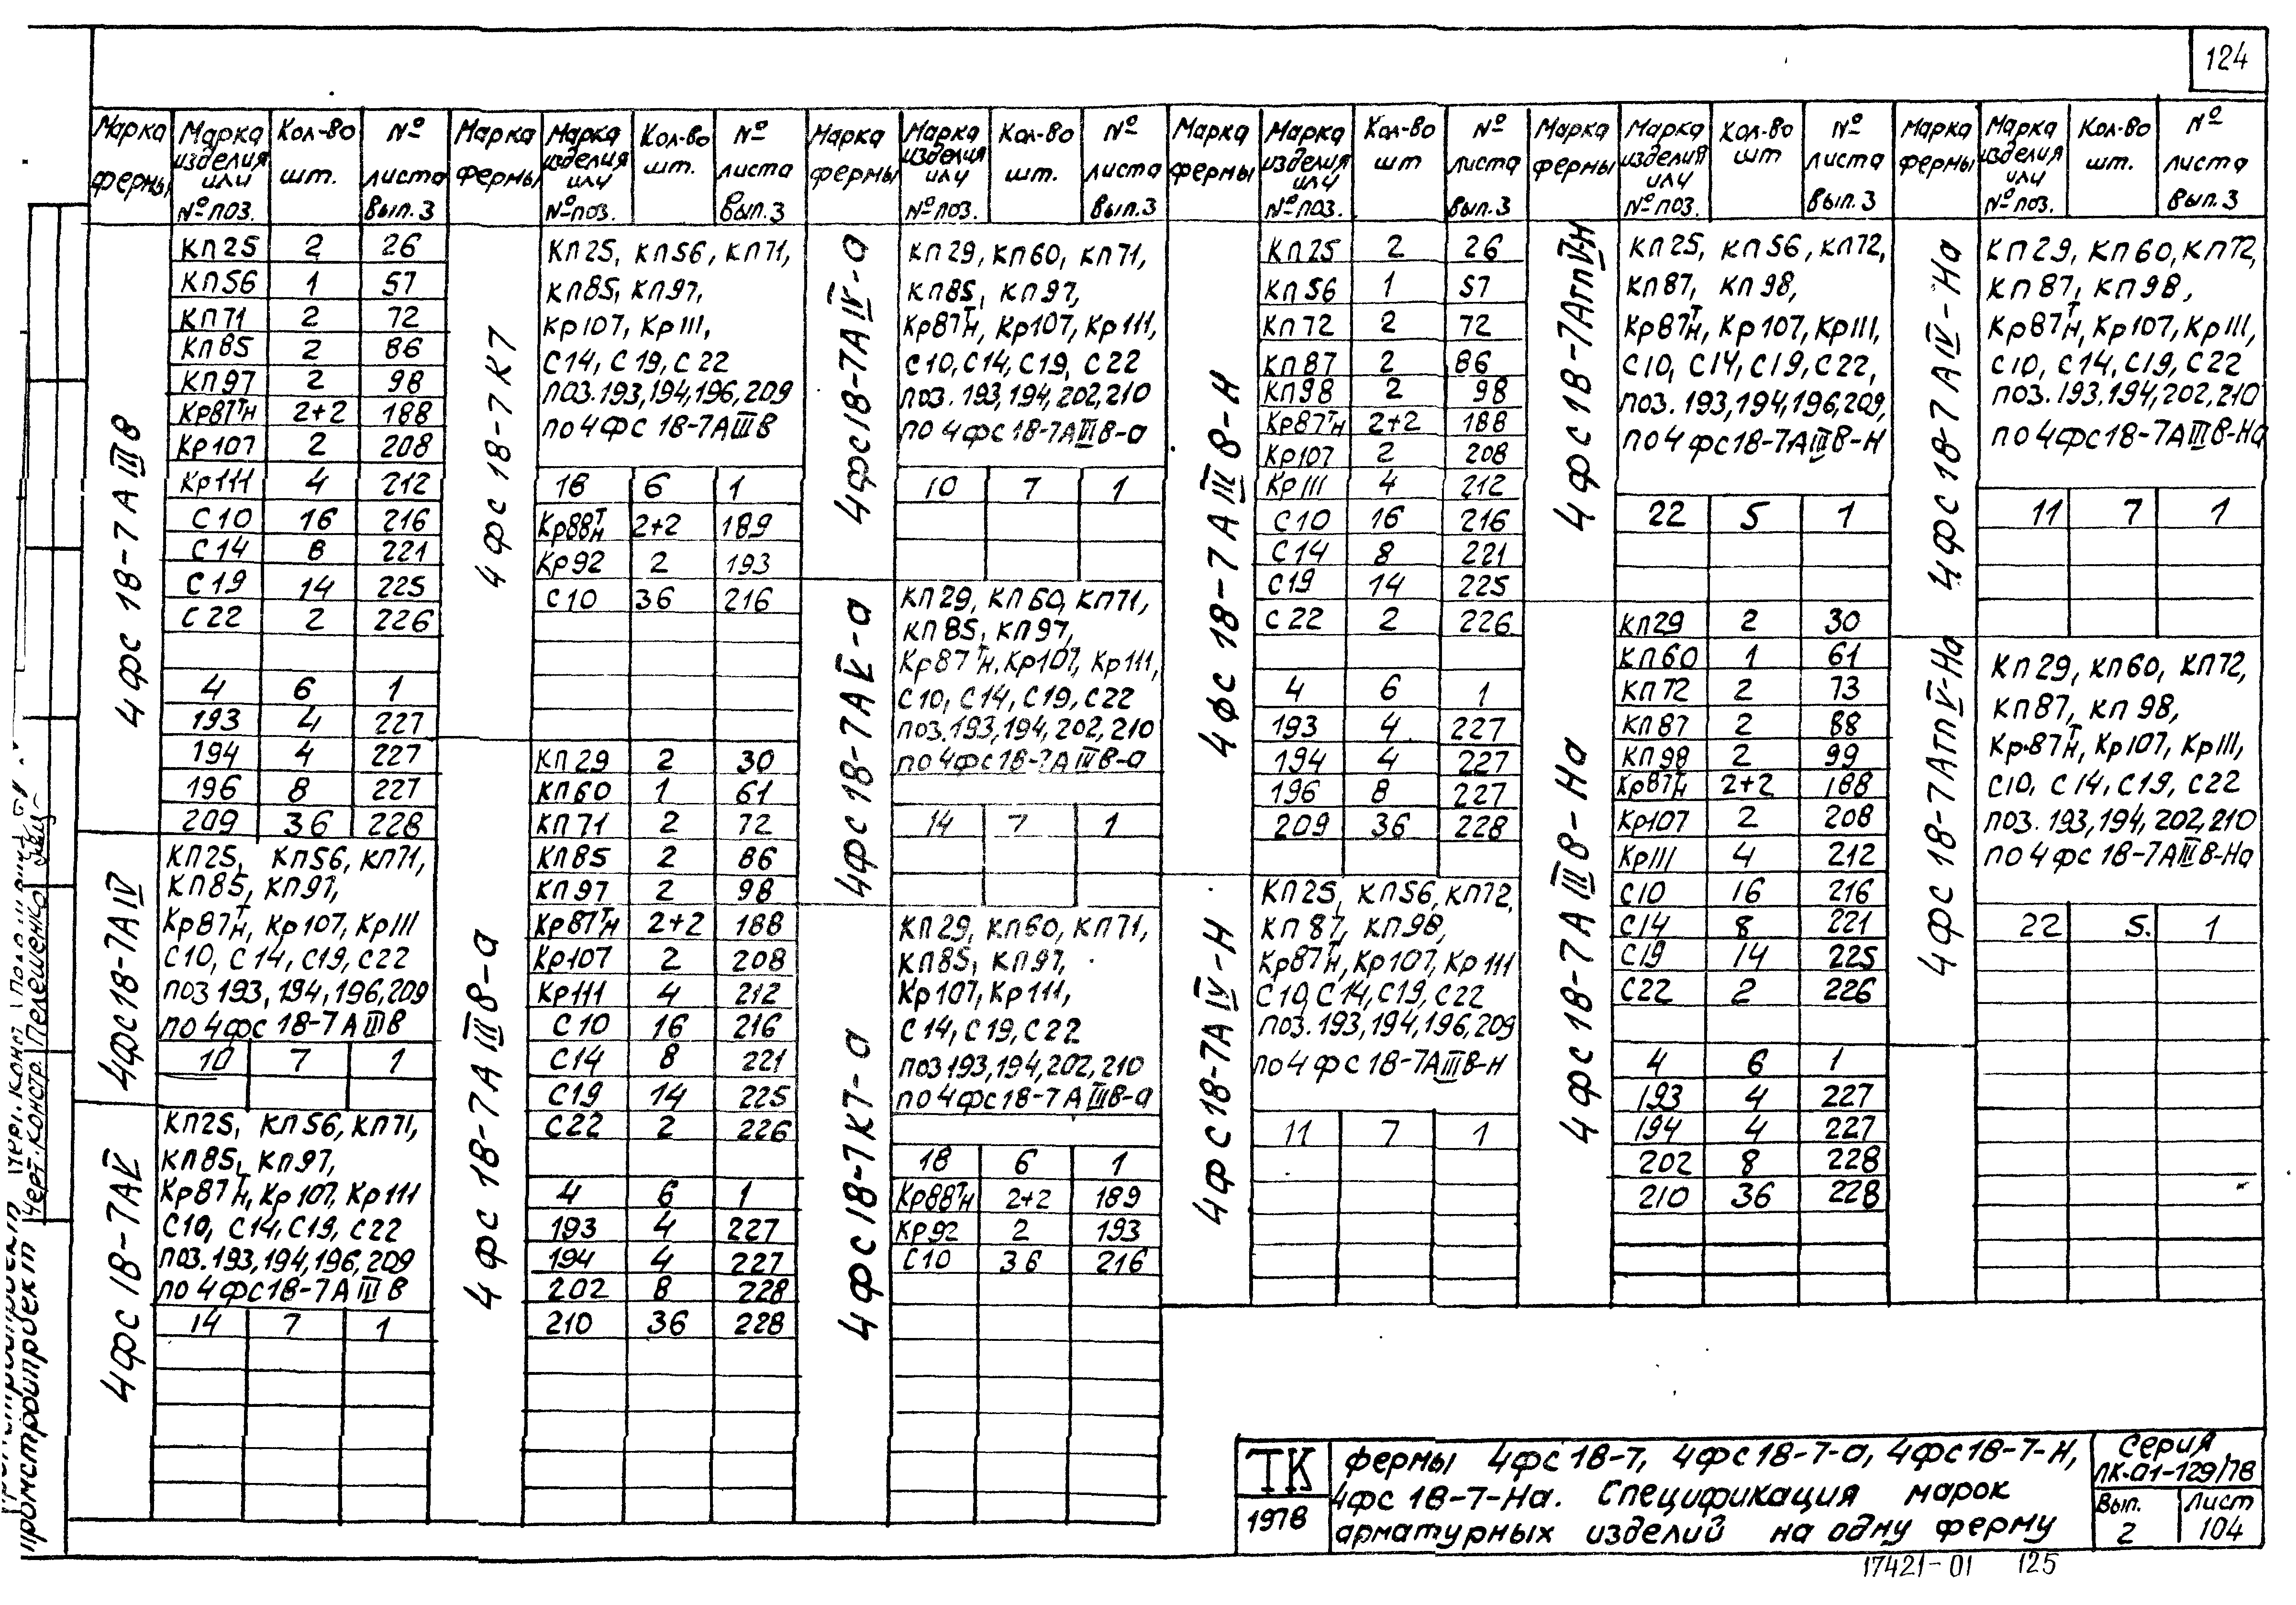 124
Марка фермы | Марка изделия или № поз. | Кол-во шт. | № листа Вып.3
4фс 18-7АIIIв
КП25 2 26
КП56 1 57
КП71 2 72
КП85 2 86
КП97 2 98
Кр87тн 2+2 188
Кр107 2 208
Кр111 4 212
С10 16 216
С14 8 221
С19 14 225
С22 2 226
4 6 1
193 4 227
194 4 227
196 8 227
209 36 228
4фс18-7АIV
КП25, КП56, КП71,
КП85, КП97,
Кр87тн, Кр107, Кр111
С10, С14, С19, С22
поз 193, 194, 196, 209
по 4фс 18-7АIIIв
10 7 1
4фс 18-7АV
КП25, КП56, КП71,
КП85, КП97,
Кр87тн, Кр107, Кр111
С10, С14, С19, С22
поз. 193, 194, 196, 209
по 4фс18-7АIIIв
14 7 1
Марка фермы | Марка изделия или № поз. | Кол-во шт. | № листа Вып.3
4фс 18-7К7
КП25, КП56, КП71,
КП85, КП97,
Кр107, Кр111,
С14, С19, С22
поз. 193, 194, 196, 209
по 4фс 18-7АIIIв
18 6 1
Кр88тн 2+2 189
Кр92 2 193
С10 36 216
4фс 18-7АIIIв-а
КП29 2 30
КП60 1 61
КП71 2 72
КП85 2 86
КП97 2 98
Кр87тн 2+2 188
Кр107 2 208
Кр111 4 212
С10 16 216
С14 8 221
С19 14 225
С22 2 226
4 6 1
193 4 227
194 4 227
202 8 228
210 36 228
Марка фермы | Марка изделия или № поз. | Кол-во шт. | № листа Вып.3
4фс18-7АIV-а
КП29, КП60, КП71,
КП85, КП97,
Кр87тн, Кр107, Кр111,
С10, С14, С19, С22
поз. 193, 194, 202, 210
по 4фс18-7АIIIв-а
10 7 1
4фс 18-7АV-а
КП29, КП60, КП71,
КП85, КП97,
Кр87тн, Кр107, Кр111,
С10, С14, С19, С22
поз. 193, 194, 202, 210
по 4фс18-7АIIIв-а
14 7 1
4фс18-7К7-а
КП29, КП60, КП71,
КП85, КП97,
Кр107, Кр111,
С14, С19, С22
поз 193, 194, 202, 210
по 4фс18-7АIIIв-а
18 6 1
Кр88тн 2+2 189
Кр92 2 193
С10 36 216
Марка фермы | Марка изделия или № поз. | Кол-во шт | № листа Вып.3
4фс 18-7АIIIв-Н
КП25 2 26
КП56 1 57
КП72 2 72
КП87 2 86
КП98 2 98
Кр87тн 2+2 188
Кр107 2 208
Кр111 4 212
С10 16 216
С14 8 221
С19 14 225
С22 2 226
4 6 1
193 4 227
194 4 227
196 8 227
209 36 228
4фс18-7АIV-Н
КП25, КП56, КП72,
КП87, КП98,
Кр87тн, Кр107, Кр111
С10, С14, С19, С22
поз. 193, 194, 196, 209
по 4фс 18-7АIIIв-Н
11 7 1
Марка фермы | Марка изделия или № поз. | Кол-во шт | № листа Вып.3
4фс 18-7АтпVН
КП25, КП56, КП72,
КП87, КП98,
Кр87тн, Кр107, Кр111,
С10, С14, С19, С22,
поз. 193, 194, 196, 209,
по 4фс18-7АIIIв-Н
22 5 1
4фс 18-7АIIIв-На
КП29 2 30
КП60 1 61
КП72 2 73
КП87 2 88
КП98 2 99
Кр87тн 2+2 188
Кр107 2 208
Кр111 4 212
С10 16 216
С14 8 221
С19 14 225
С22 2 226
4 6 1
193 4 227
194 4 227
202 8 228
210 36 228
Марка фермы | Марка изделия или № поз. | Кол-во шт. | № листа Вып.3
4фс 18-7АIV-На
КП29, КП60, КП72,
КП87, КП98,
Кр87тн, Кр107, Кр111,
С10, С14, С19, С22
поз. 193, 194, 202, 210
по 4фс18-7АIIIв-На
11 7 1
4фс 18-7АтпV-На
КП29, КП60, КП72,
КП87, КП98,
Кр.87тн, Кр107, Кр111,
С10, С14, С19, С22
поз. 193, 194, 202, 210
по 4фс 18-7АIIIв-На
22 5. 1
ТК
1978
Фермы 4фс18-7, 4фс18-7-а, 4фс18-7-Н,
4фс 18-7-На. Спецификация марок
арматурных изделий на одну ферму
Серия
ПК-01-129/78
Вып. 2
Лист 104
17421-01 125
Черт. Констр. Пелешенко
промстройпроект